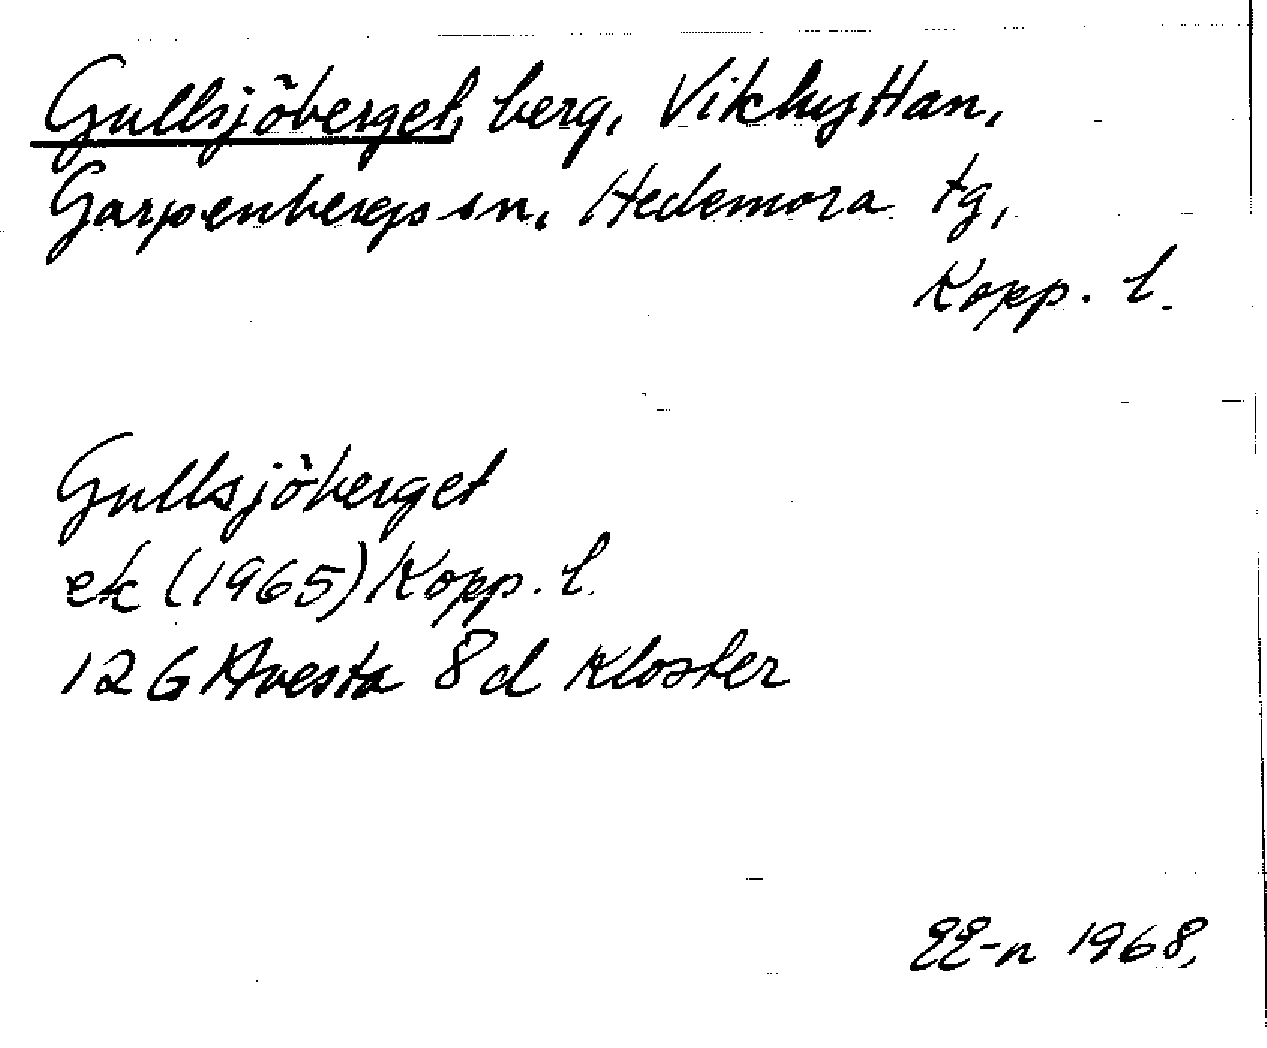 Gullsjöberget, berg, Vikhyttan,
Garpenbergs sn, Hedemora tg,
Kopp. l.
Gullsjöberget
ek (1965) Kopp. l.
12 G Avesta 8d Kloster
EE-n 1968,